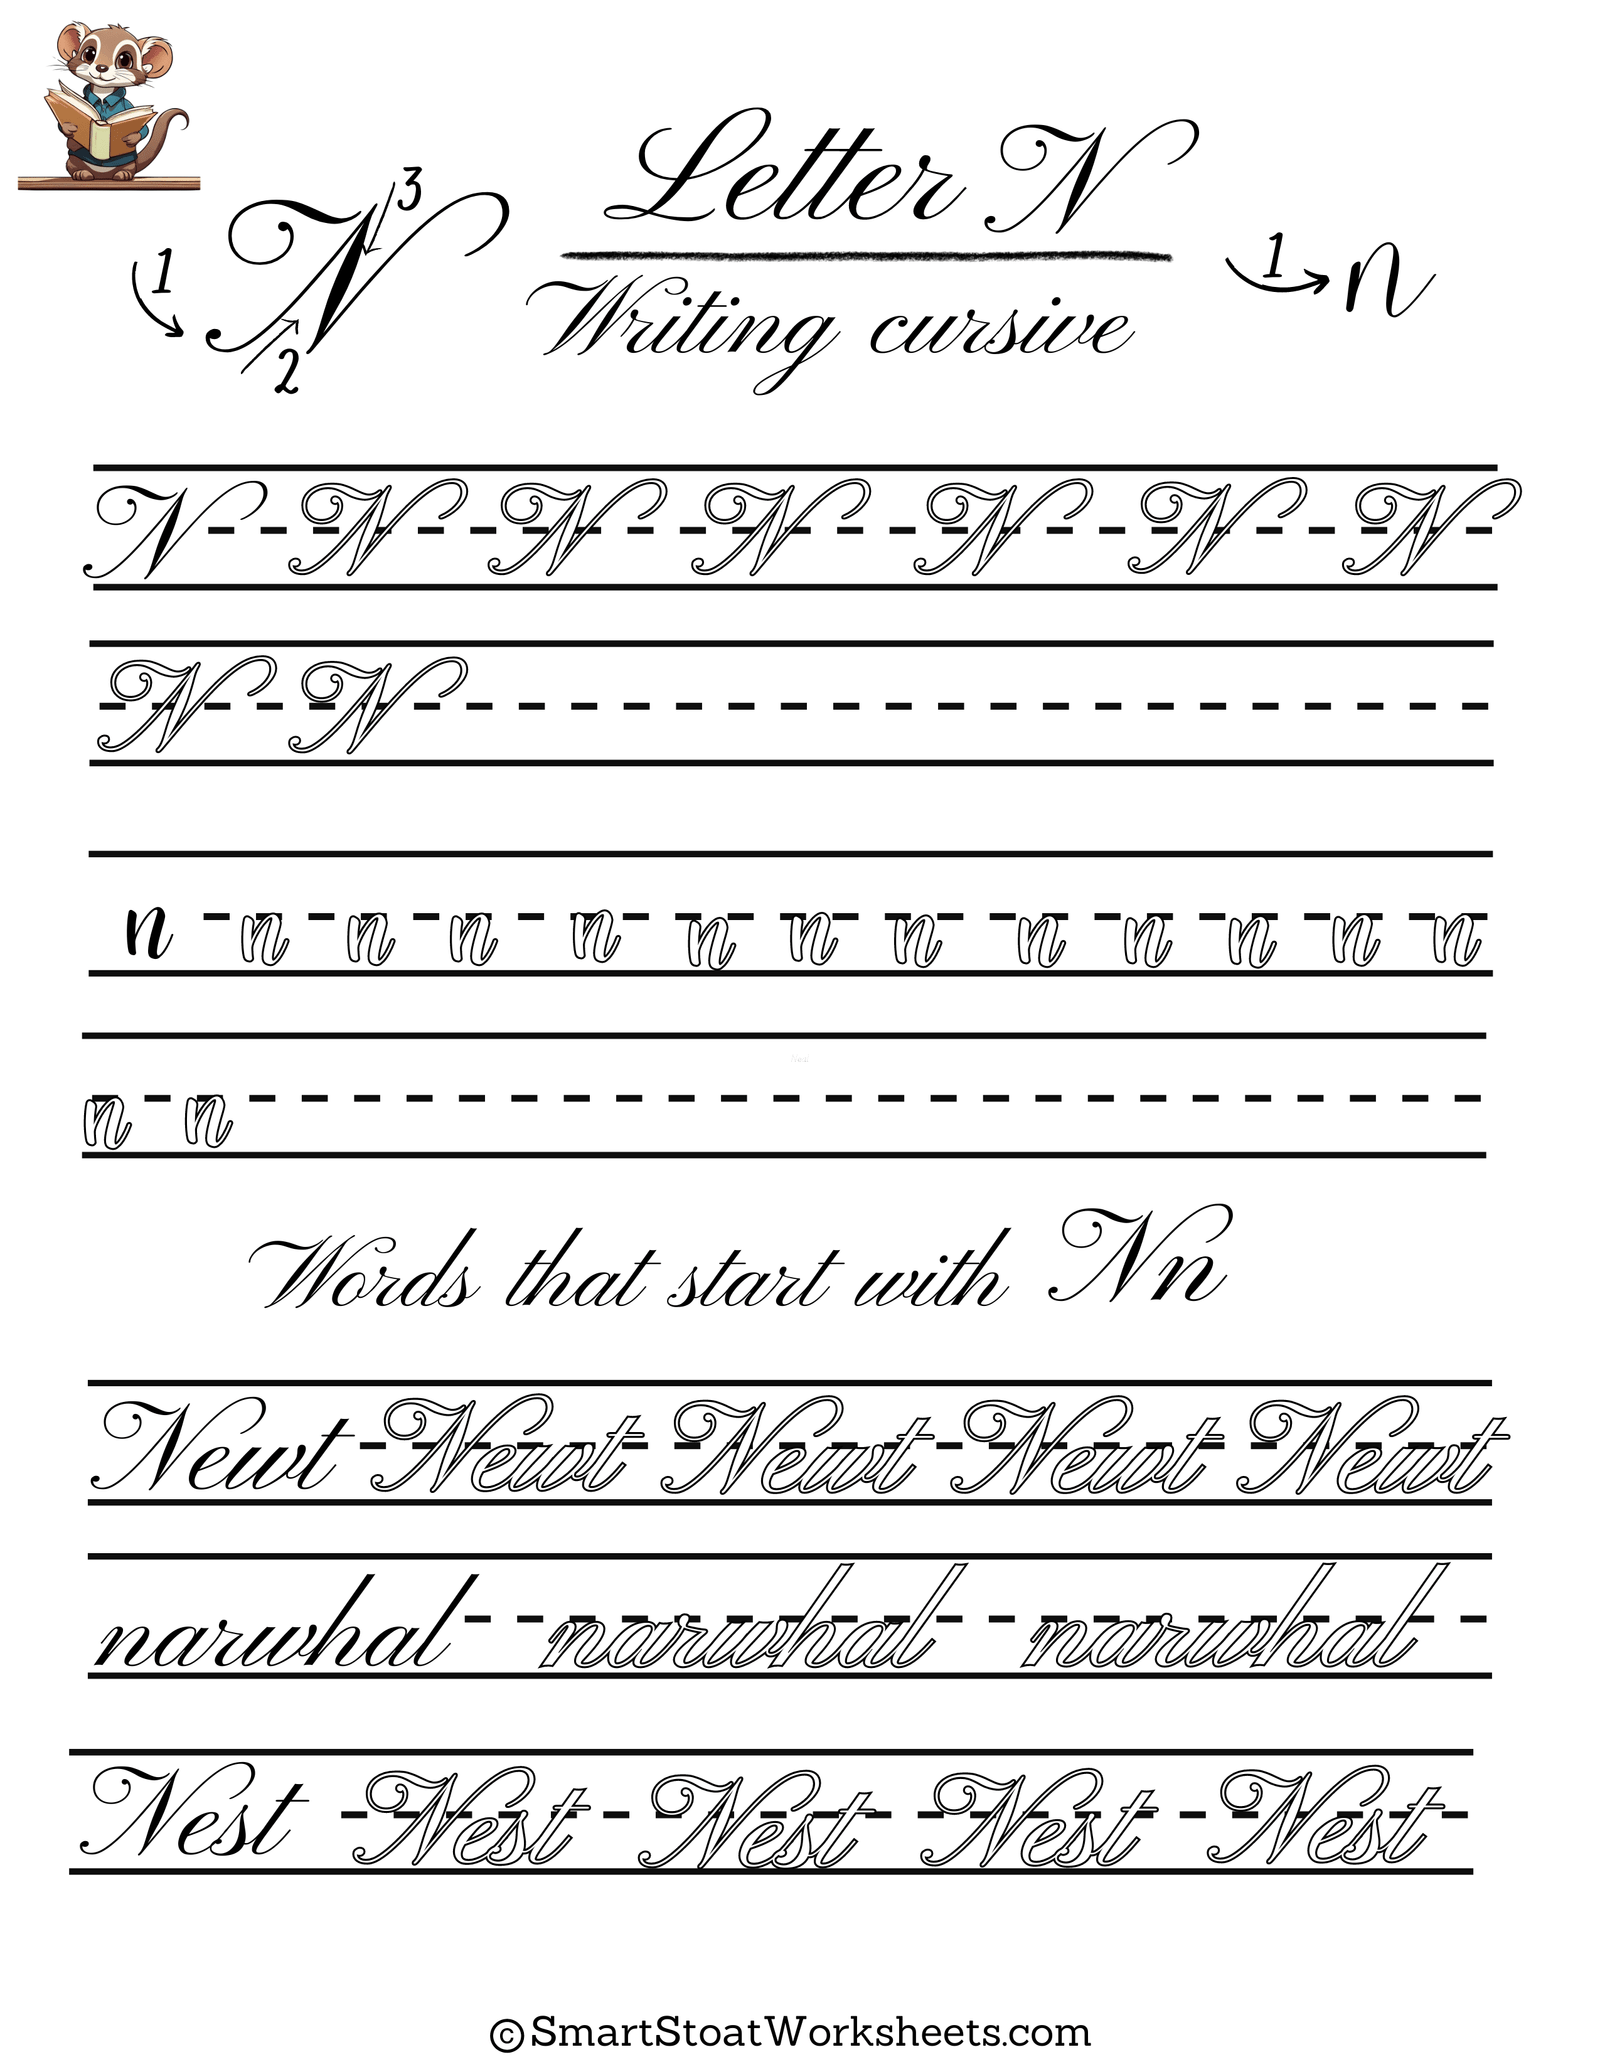 Letter N
3
1
1
n
N
2
Writing cursive
N N N N N N N
N N
n n n n n n n n n n n n n
n n
Words that start with Nn
Newt Newt Newt Newt Newt
narwhal narwhal narwhal
Nest Nest Nest Nest Nest
©SmartStoatWorksheets.com